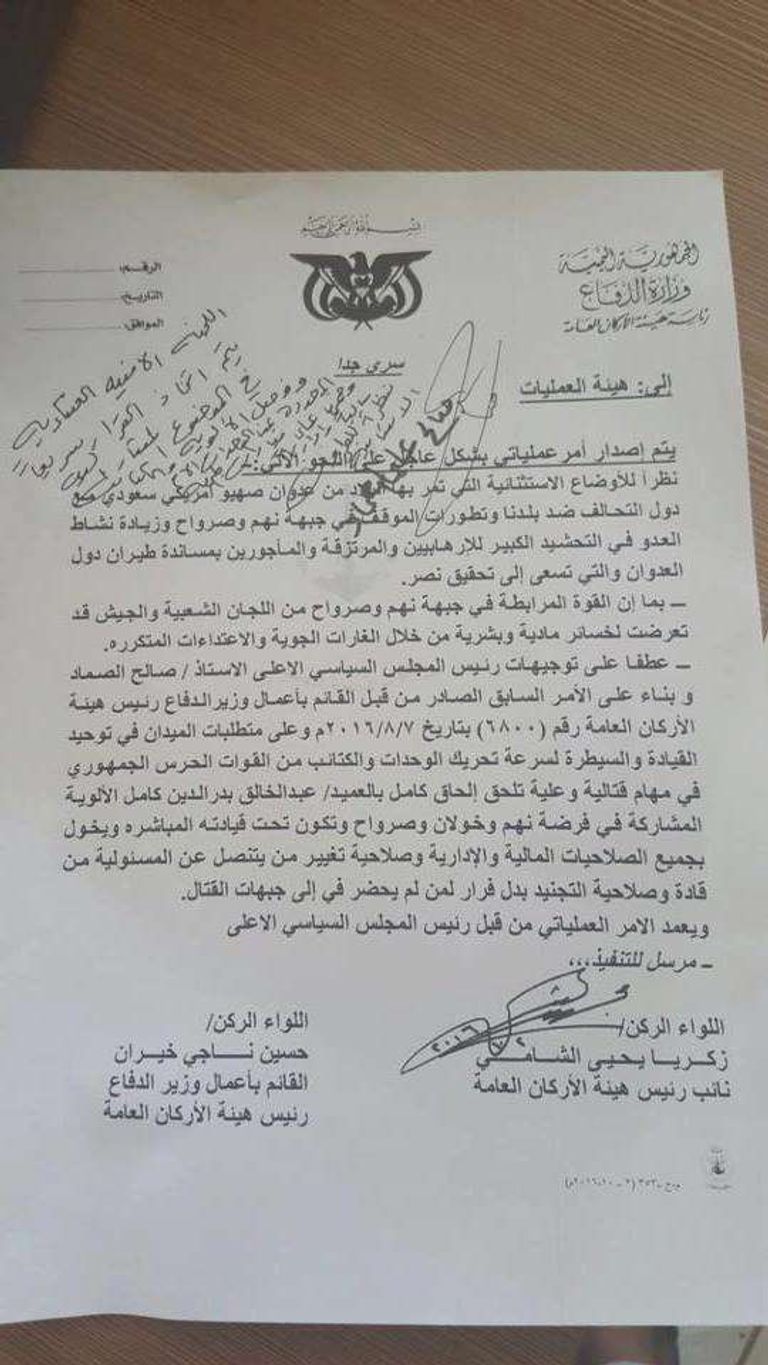 بسم الله الرحمن الرحيم
الجمهورية اليمنية
وزارة الدفاع
رئاسة هيئة الأركان العامة
الرقم:
التاريخ:
الموافق:
سري جدا
إلى: هيئة العمليات
اللجنة الامنية العسكرية
يتم اتخاذ
الموضوع
يتم إصدار أمر عملياتي بشكل عاجل على النحو الآتي:-
نظراً للأوضاع الاستثنائية التي تمر بها البلاد من عدوان صهيو أمريكي سعودي مع
دول التحالف ضد بلدنا وتطورات الموقف في جبهة نهم وصرواح وزيادة نشاط
العدو في التحشيد الكبير للإرهابيين والمرتزقة والمأجورين بمساندة طيران دول
العدوان والتي تسعى إلى تحقيق نصر.
ــ بما إن القوة المرابطة في جبهة نهم وصرواح من اللجان الشعبية والجيش قد
تعرضت لخسائر مادية وبشرية من خلال الغارات الجوية والاعتداءات المتكرره.
ــ عطفا على توجيهات رئيس المجلس السياسي الاعلى الاستاذ / صالح الصماد
و بناء على الأمر السابق الصادر من قبل القائم بأعمال وزير الدفاع رئيس هيئة
الأركان العامة رقم (٦٨٠٠) بتاريخ ٢٠١٦/٨/٧م وعلى متطلبات الميدان في توحيد
القيادة والسيطرة لسرعة تحريك الوحدات والكتائب من القوات الحرس الجمهوري
في مهام قتالية وعلية تلحق إلحاق كامل بالعميد/ عبدالخالق بدرالدين كامل الالوية
المشاركة في فرضة نهم وخولان وصرواح وتكون تحت قيادته المباشره ويخول
بجميع الصلاحيات المالية والإدارية وصلاحية تغيير من يتنصل عن المسئولية من
قادة وصلاحية التجنيد بدل فرار لمن لم يحضر في إلى جبهات القتال.
ويعمد الامر العملياتي من قبل رئيس المجلس السياسي الاعلى
ــ مرسل للتنفيذ،،،
اللواء الركن/
زكريا يحيى الشامي
نائب رئيس هيئة الأركان العامة
اللواء الركن/
حسين ناجي خيران
القائم بأعمال وزير الدفاع
رئيس هيئة الأركان العامة